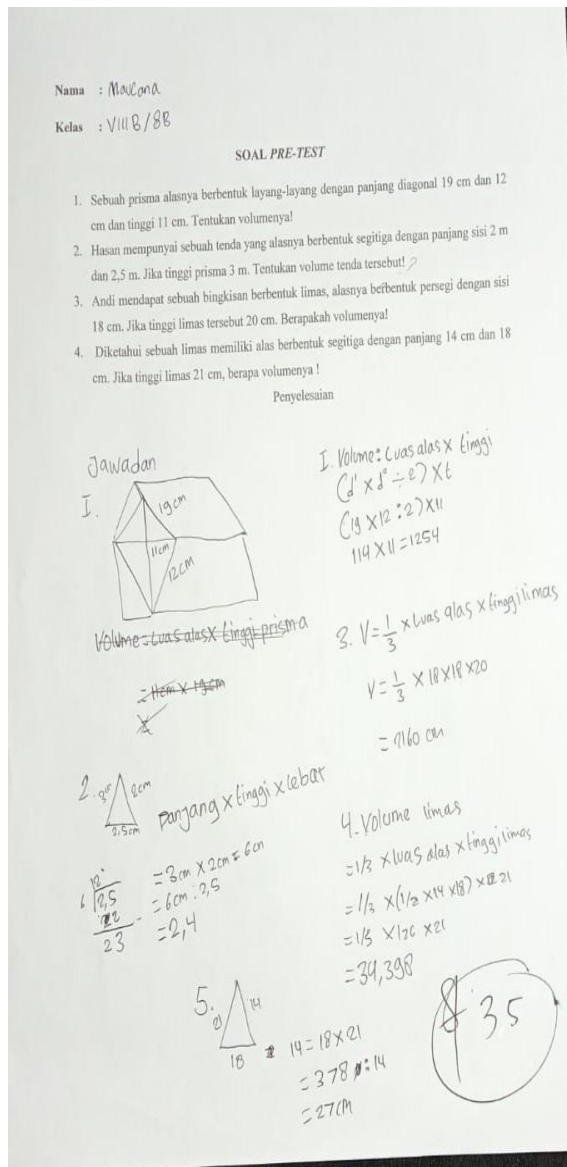 Nama : Maulana
Kelas : VIII B / 8B
SOAL PRE-TEST
1. Sebuah prisma alasnya berbentuk layang-layang dengan panjang diagonal 19 cm dan 12
cm dan tinggi 11 cm. Tentukan volumenya!
2. Hasan mempunyai sebuah tenda yang alasnya berbentuk segitiga dengan panjang sisi 2 m
dan 2,5 m. Jika tinggi prisma 3 m. Tentukan volume tenda tersebut! ?
3. Andi mendapat sebuah bingkisan berbentuk limas, alasnya berbentuk persegi dengan sisi
18 cm. Jika tinggi limas tersebut 20 cm. Berapakah volumenya!
4. Diketahui sebuah limas memiliki alas berbentuk segitiga dengan panjang 14 cm dan 18
cm. Jika tinggi limas 21 cm, berapa volumenya !
Penyelesaian
Jawadan
I.
19cm
11cm
12cm
Volume = Luas alas x tinggi prisma
= 11cm x 19cm
I. Volume: Luas alas x tinggi
(19 x 12 : 2) x 11
114 x 11 = 1254
3. V = 1/3 x Luas alas x tinggi limas
V = 1/3 x 18 x 18 x 20
= 2160 cm
2.
2cm
2.5cm
Panjang x tinggi x lebar
= 3cm x 2cm = 6cm
= 6cm : 2,5
= 2,4
6
12
2,5
23
4. Volume limas
= 1/3 x luas alas x tinggi limas
= 1/3 x (1/2 x 14 x 18) x 21
= 1/3 x 126 x 21
= 34,398
5.
21
14
18
14 = 18 x 21
= 378 : 14
= 27cm
35